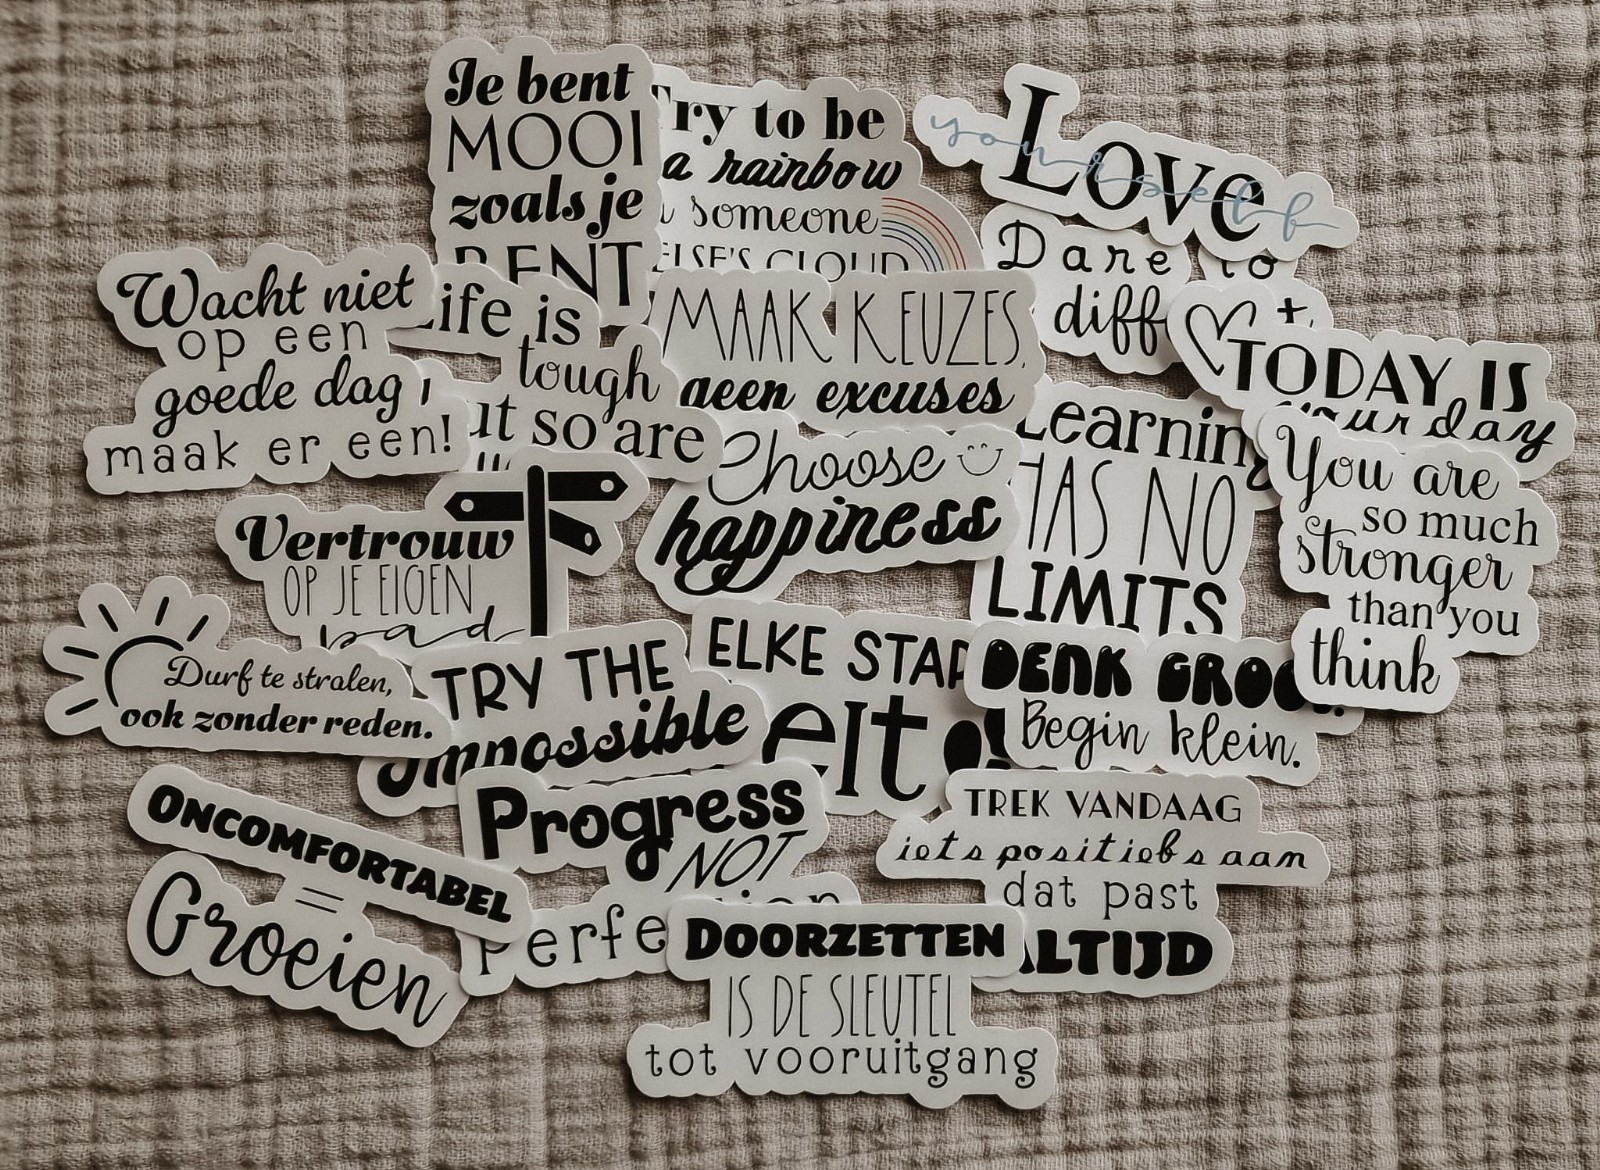 Je bent
MOOI
zoals je
BENT
Try to be
a rainbow
someone
ELSE'S CLOUD
yourself
Love
Dare to
diff
Wacht niet
op een
goede dag,
maak er een!
Life is
tough
but so are
MAAK KEUZES,
geen excuses
+
TODAY IS
your day
Choose
happiness
Learning
HAS NO
LIMITS
You are
so much
stronger
than you
think
Vertrouw
OP JE EIGEN
pad
Durf te stralen,
ook zonder reden.
TRY THE
Impossible
ELKE STAP
elt
DENK GROOT.
Begin klein.
ONCOMFORTABEL
=
Groeien
Progress
NOT
Perfection
TREK VANDAAG
iets positiefs aan
dat past
ALTIJD
DOORZETTEN
IS DE SLEUTEL
tot vooruitgang